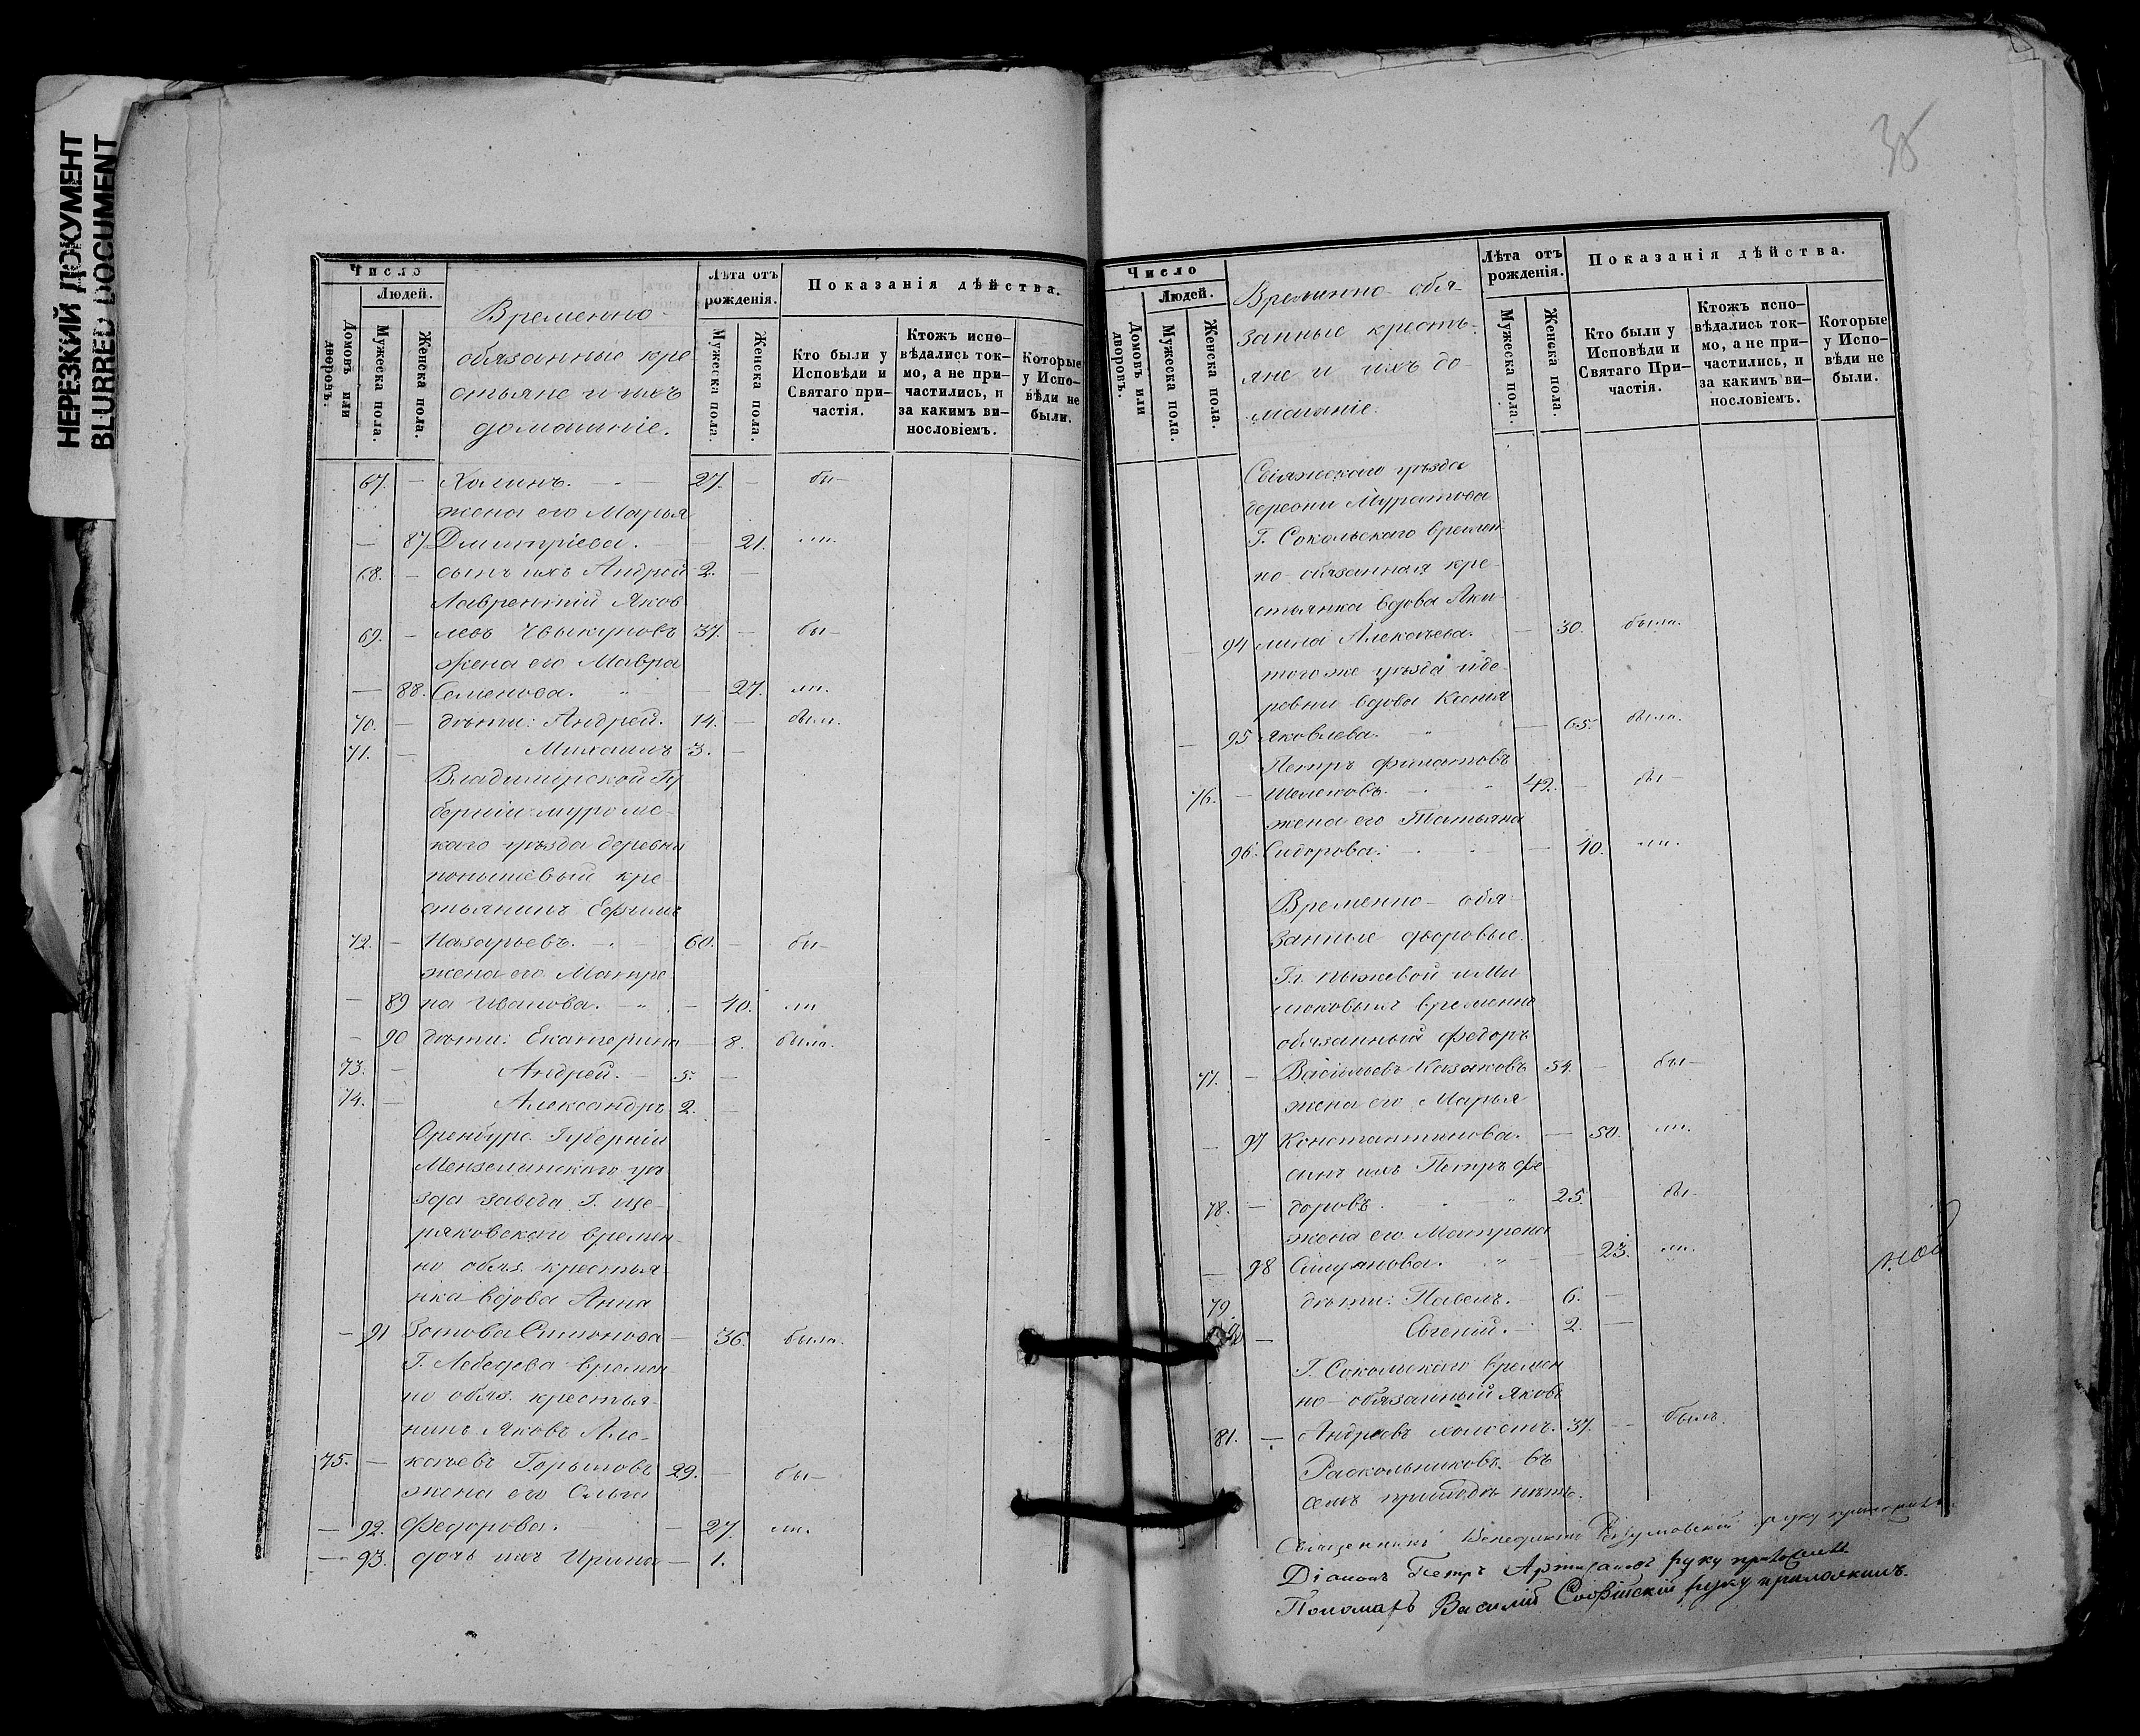 НЕРЕЗКИЙ ДОКУМЕНТ
BLURRED DOCUMENT
Число
Людей.
Домовъ или дворовъ.
Мужеска пола.
Женска пола.
Временно-
обязанные кре
стьяне и ихъ
домашніе.
Лѣта отъ
рожденія.
Мужеска пола.
Женска пола.
Показанія дѣйства.
Кто были у
Исповѣди и
Святаго при-
частія.
Ктожъ испо-
вѣдались ток-
мо, а не при-
частились, и
за какимъ ви-
нословіемъ.
Которые
у Испо-
вѣди не
были.
67. — Халинъ. — 27. — бы—
жена его Марья
— 87 Дмитріева. — 21.
68. — сынъ ихъ Андрей 2. —
Лаврентій Яков
69. — левъ Чвыкуновъ 37. — бы—
жена его Мавра
— 88. Семенова. „ — 27.
70. — дѣти: Андрей. 14. — был.
71. — Михаилъ 3. —
Владимірской Гу
берніи муромс-
каго уѣзда деревни
кре-
стьянинъ Ефимъ
72. — Назарьевъ. — 60. — бы—
жена его Матре
— 89 на Иванова. — „ — 40.
— 90 дѣти: Екатерина — 8. была.
73. — Андрей. — 5. —
74. — Александръ 2. —
Оренбург. Губерніи
Мензелинскаго уѣ
зда завода Г. ще-
ряковской времен-
но обяз. крестья-
нка вдова Анна
— 91 Зотова — 36. была.
Г. Лебедева времен-
но обяз. крестья-
нинъ Яковъ Але-
75. — ксѣевъ Горыновъ 29. — бы—
жена его Ольга
— 92. Федорова. — 27.
— 93. дочь ихъ Ирина — 1.
38
Число
Людей.
Домовъ или дворовъ.
Мужеска пола.
Женска пола.
Временно- обя-
занные кресть-
яне и ихъ до-
машніе.
Лѣта отъ
рожденія.
Мужеска пола.
Женска пола.
Показанія дѣйства.
Кто были у
Исповѣди и
Святаго При-
частія.
Ктожъ испо-
вѣдались ток-
мо, а не при-
частились, и
за какимъ ви-
нословіемъ.
Которые
у Испо-
вѣди не
были.
Свіяжскаго уѣзда
деревни Муратова
Г. Сокольскаго времен-
но- обязанная кре-
стьянка вдова Аки-
— 94 лина Алексѣева. — 30. была.
того же уѣзда и де-
ревни вдова Ксенья
— 95 Яковлева. „ — 65. была.
Петръ Филатовъ
76. — Шелеховъ. „ 42. — бы—
жена его Татьяна
96. Сидорова: — 40.
Временно- обя-
занные дворовые.
Гг. Пыжевой и Ми
люковыхъ временно
обязанный Федоръ
77. — Васильевъ Казаковъ 54. — бы—
жена его Марья
— 97 Константинова. — 50.
сынъ ихъ Петръ Фе-
78. — доровъ. „ 25. бы—
жена его Матрона
— 98 „ — 23.
79. дѣти: Павелъ. — 6. —
— Евгеній. — 2. —
Г. Сокольскаго времен
но- обязанный Яковъ
81. — Андреевъ холостъ. 37. — былъ.
Раскольниковъ въ
семъ приходѣ нѣтъ.
Священникъ Венедиктъ руку приложилъ.
Діаконъ Петръ руку приложилъ
Пономарь Василій Софійскій руку приложилъ.